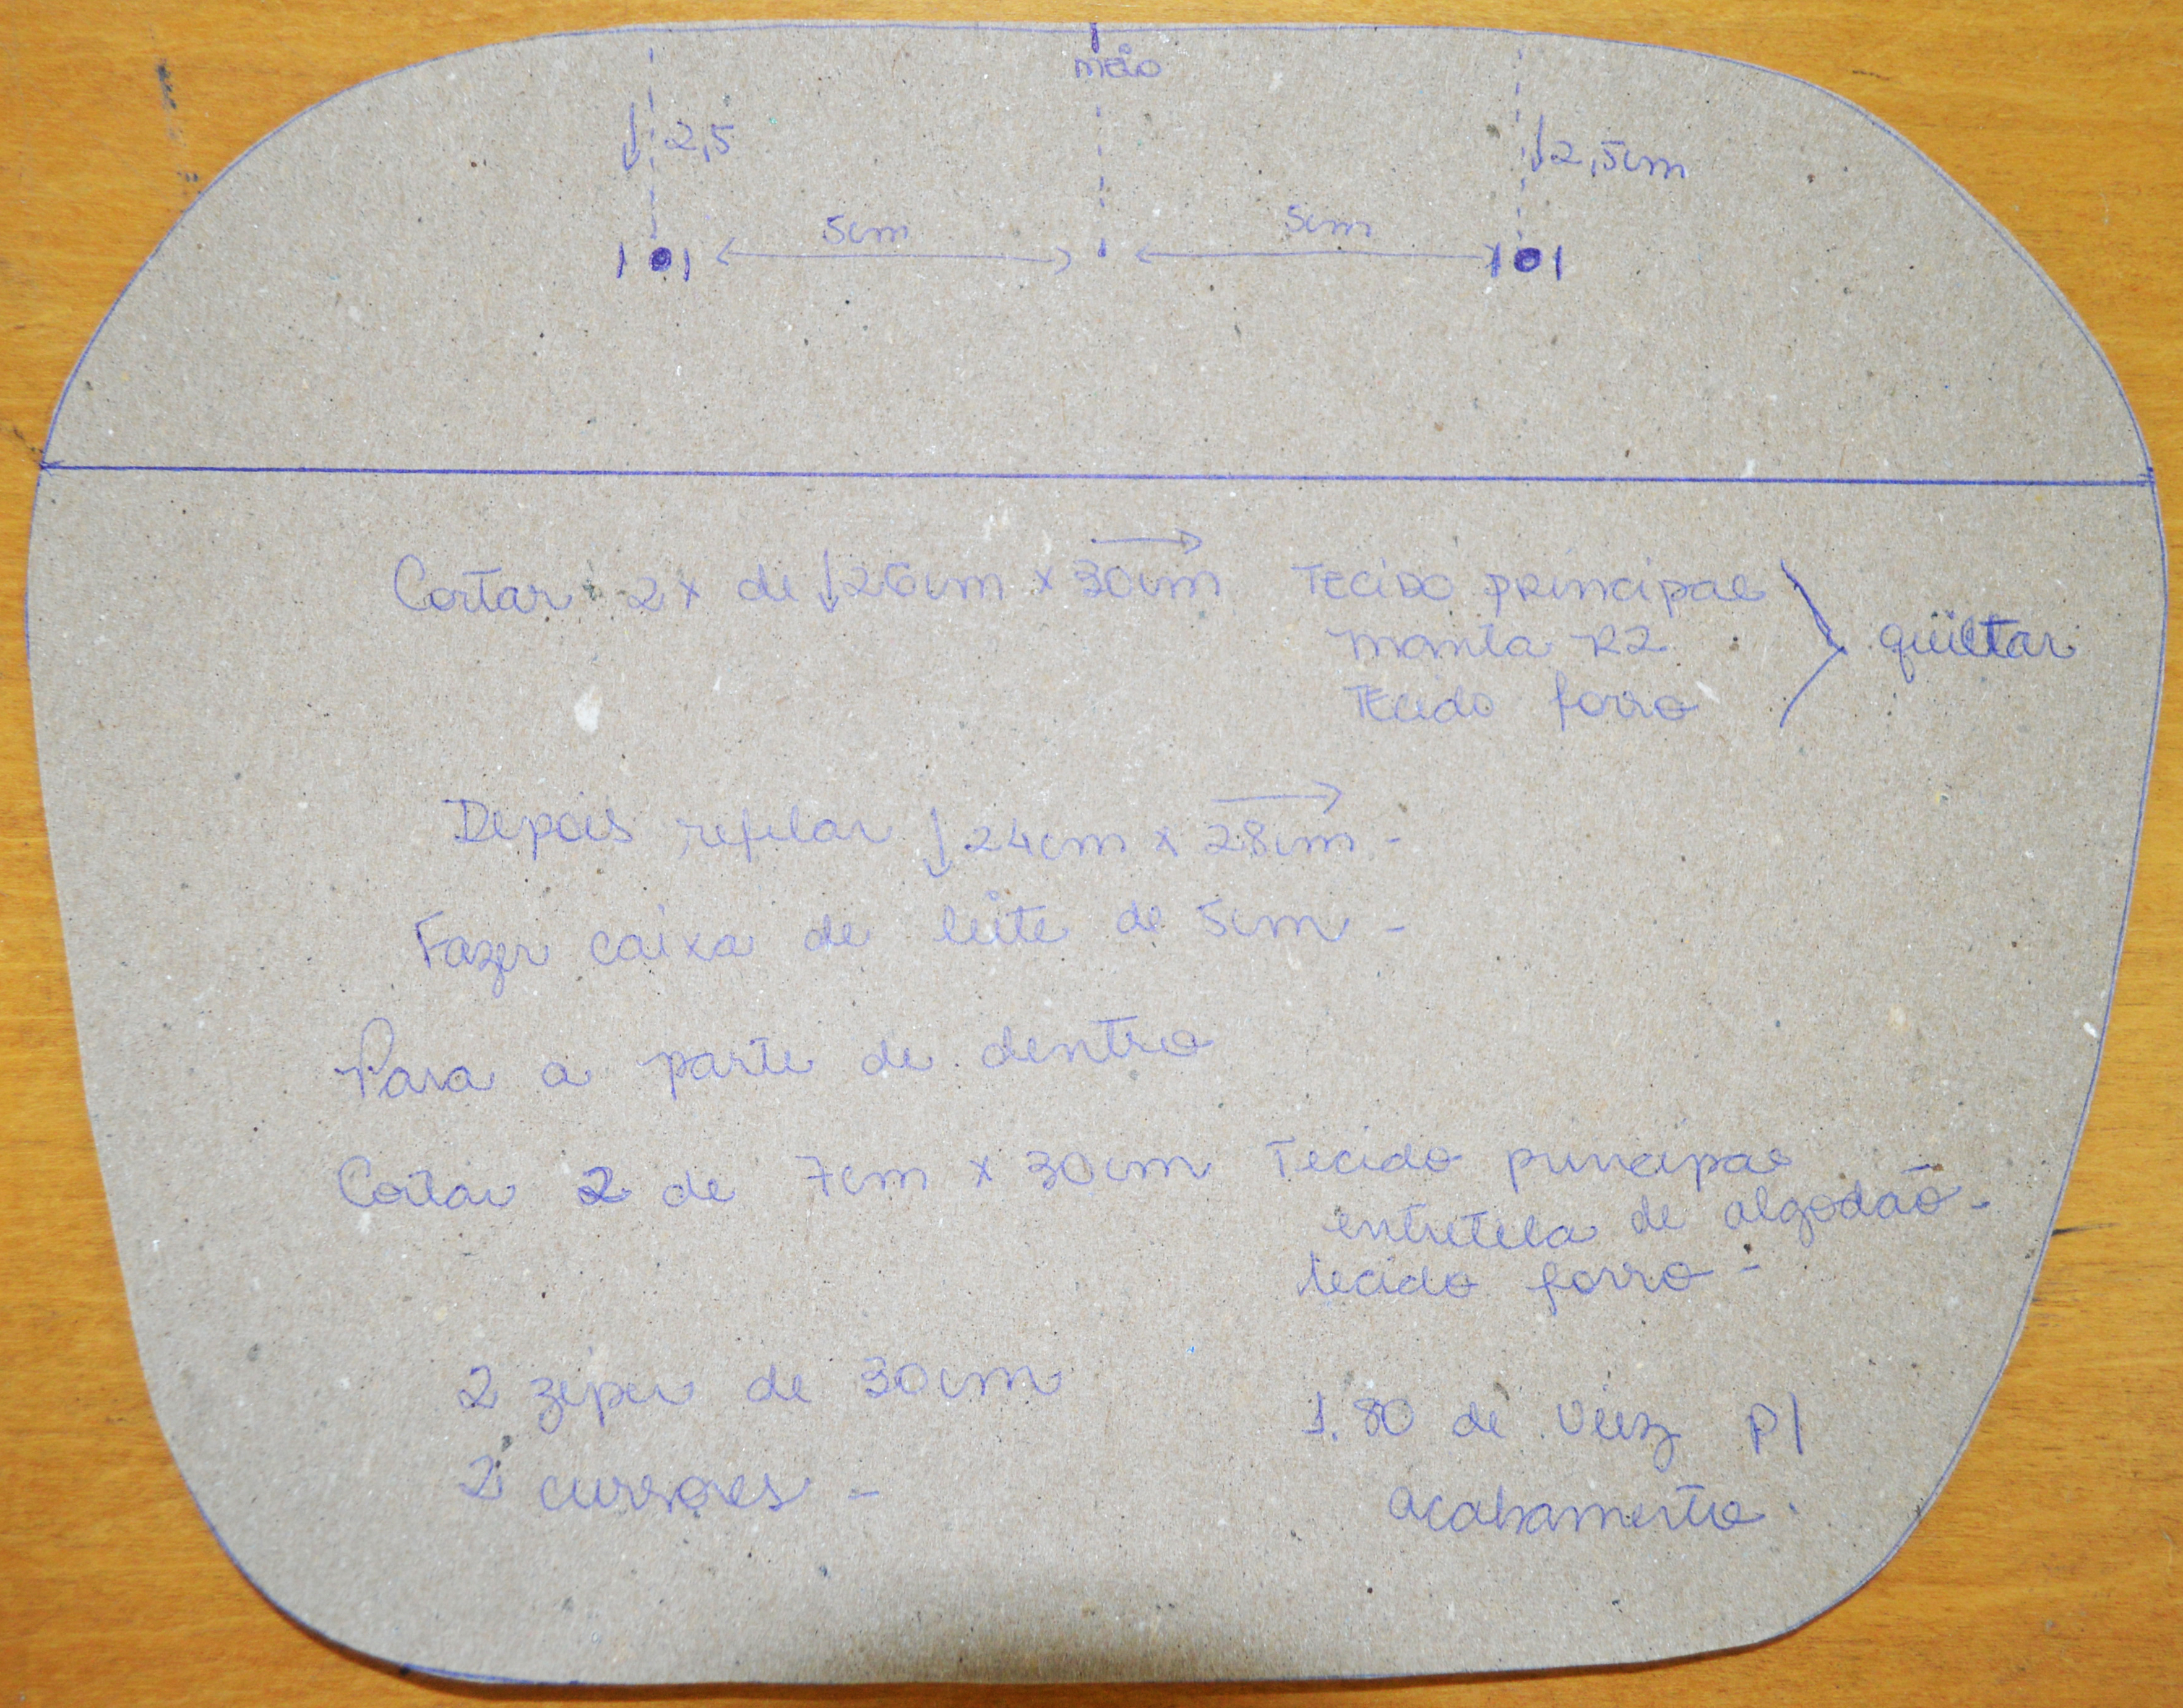 meio
2,5
2,5cm
5cm
5cm
Cortar 2x de ↓26cm x 30cm Tecido principal
manta R2
quiltar
Tecido forro
Depois refilar ↓24cm x 28cm -
Fazer caixa de leite de 5cm -
Para a parte de dentro
Cortar 2 de 7cm x 30cm Tecido principal
entretela de algodão -
tecido forro -
2 zíper de 30cm
1.80 de viez p/
2 cursores -
acabamento.